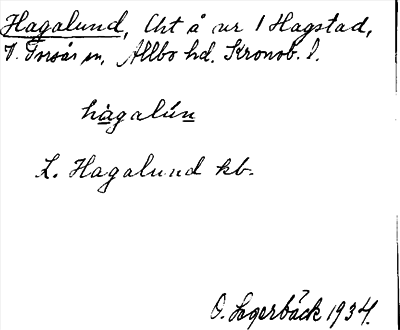 Hagalund, Cht å nr 1 Hagstad,
V. Torsås sn, Allbo hd. Kronob. l.
hàgalún
L. Hagalund kb.
O. Lagerbäck 1934.